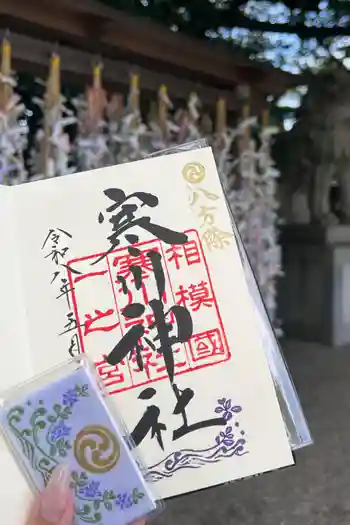 八方除
相模國
寒川神社
一之宮
寒川神社
令和八年五月